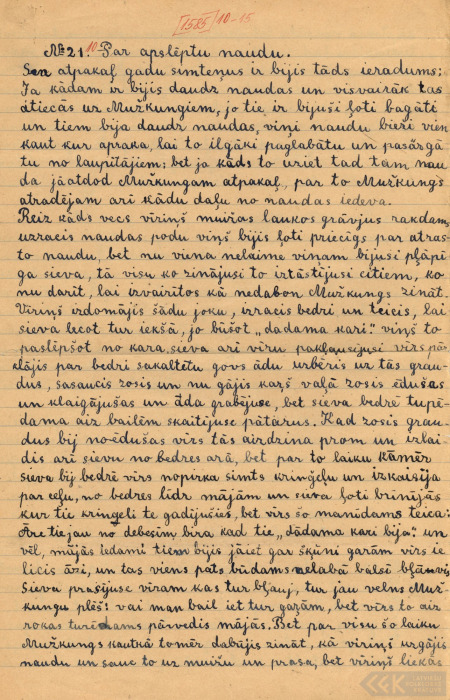 [1585] 10-15
№21. 10 Par apslēptu naudu.
Sen atpakaļ gadu simteņus ir bijis tāds ieradums:
Ja kādam ir bijis daudz naudas un visvairāk tas
atiecās uz Muižkungiem, jo tie ir bijuši ļoti bagāti
un tiem bija daudz naudas, viņi naudu bieži vien
kaut kur apraka, lai to ilgāki paglabātu un pasārgā-
tu no laupītājiem; bet ja kāds to uziet tad tam nau
da jāatdod Muižkungam atpakaļ, par to Muižkungs
atradējam arī kādu daļu no naudas iedeva.
Reiz kāds vecs vīriņš muižas laukos grāvjus rakdams,
uzracis naudas podu viņš bijis ļoti priecīgs par atras-
to naudu, bet nu viena nelaime viņam bijusi pļāpī
ga sieva, tā visu ko zinājusi to iztāstījusi citiem, ko
nu darīt, lai izvairītos kā nedabon Muižkungs zināt.
Vīriņš izdomājis šādu joku, izracis bedri un teicis, lai
sieva lecot tur iekšā, jo būšot „dadama kari" viņš to
paslēpšot no kara, sieva arī vīru paklausījusi vīrs pār
klājis par bedri sakaltētu govs ādu uzbēris uz tās grau-
dus, sasaucis zosis un nu gājis karš vaļā zosis ēdušas
un klaigājušas un āda grabējuse, bet sieva bedrē tupē-
dama aiz bailēm skaitījuse pātarus. Kad zosis grau-
dus bij noēdušas vīrs tās aizdzina prom un izlai-
dis arī sievu no bedres arā, bet par to laiku kāmēr
sieva bij bedrē vīrs nopirka simts kriņģeļu un izkaisīja
par ceļu, no bedres līdz mājām un sieva ļoti brīnījās
kur tie kriņģeļi te gadījušies, bet vīrs šo manīdams teica:
Ore tie jau no debesīm bira kad tie „dādama kari bija". un
vēl, mājās iedami tiem bijis jāiet gar šķūni garām vīrs ie
licis āzi, un tas viens pats būdams nelabā balsī bļāvis
Sieva prasījuse vīram kas tur bļauj, tur jau velns Muiž-
kungu plēš! vai man bail iet tur gaŗām, bet vīrs to aiz
rokas turēdams pārvedis mājās. Bet par visu šo laiku
Muižkungs kautkā tomēr dabūjis zināt, kā vīriņš uzgājis
naudu un sauc to uz muižu un prasa, bet vīriņš liekās